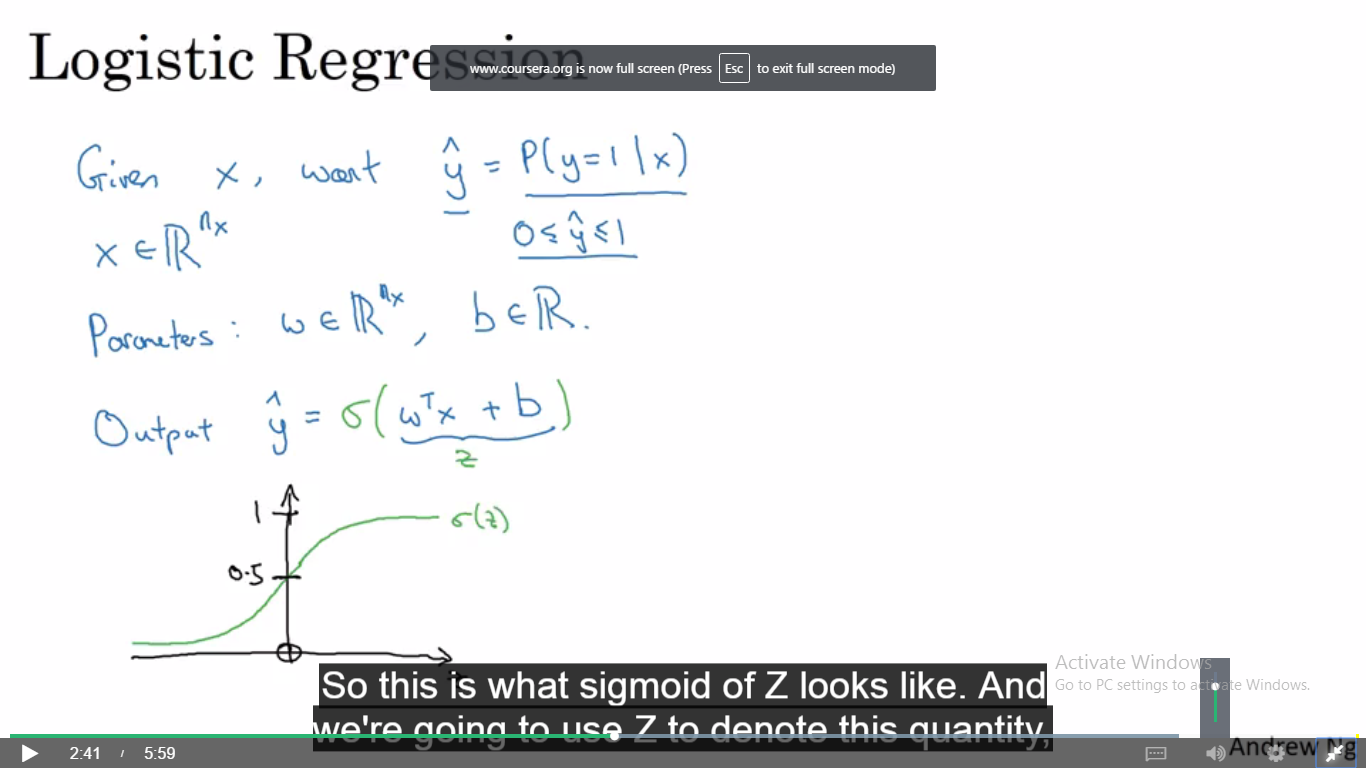 Logistic Regression
www.coursera.org is now full screen (Press Esc to exit full screen mode)
Given x, want ŷ = P(y=1|x)
x ∈ ℝⁿˣ 0 ≤ ŷ ≤ 1
Parameters: w ∈ ℝⁿˣ, b ∈ ℝ.
Output ŷ = σ(wᵀx + b)
z
1 σ(z)
0.5
So this is what sigmoid of Z looks like. And
we're going to use Z to denote this quantity,
Activate Windows
Go to PC settings to activate Windows.
2:41 / 5:59
Andrew Ng